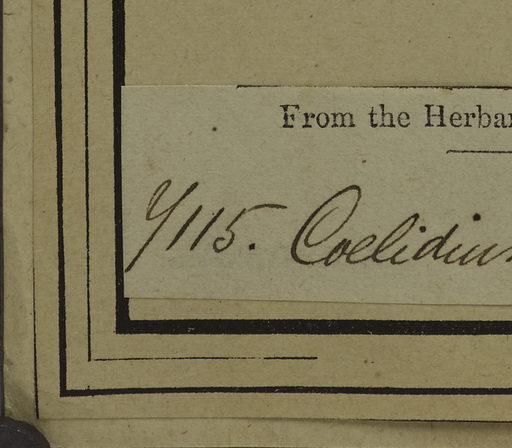 From the Herbar
/115. Coelidium